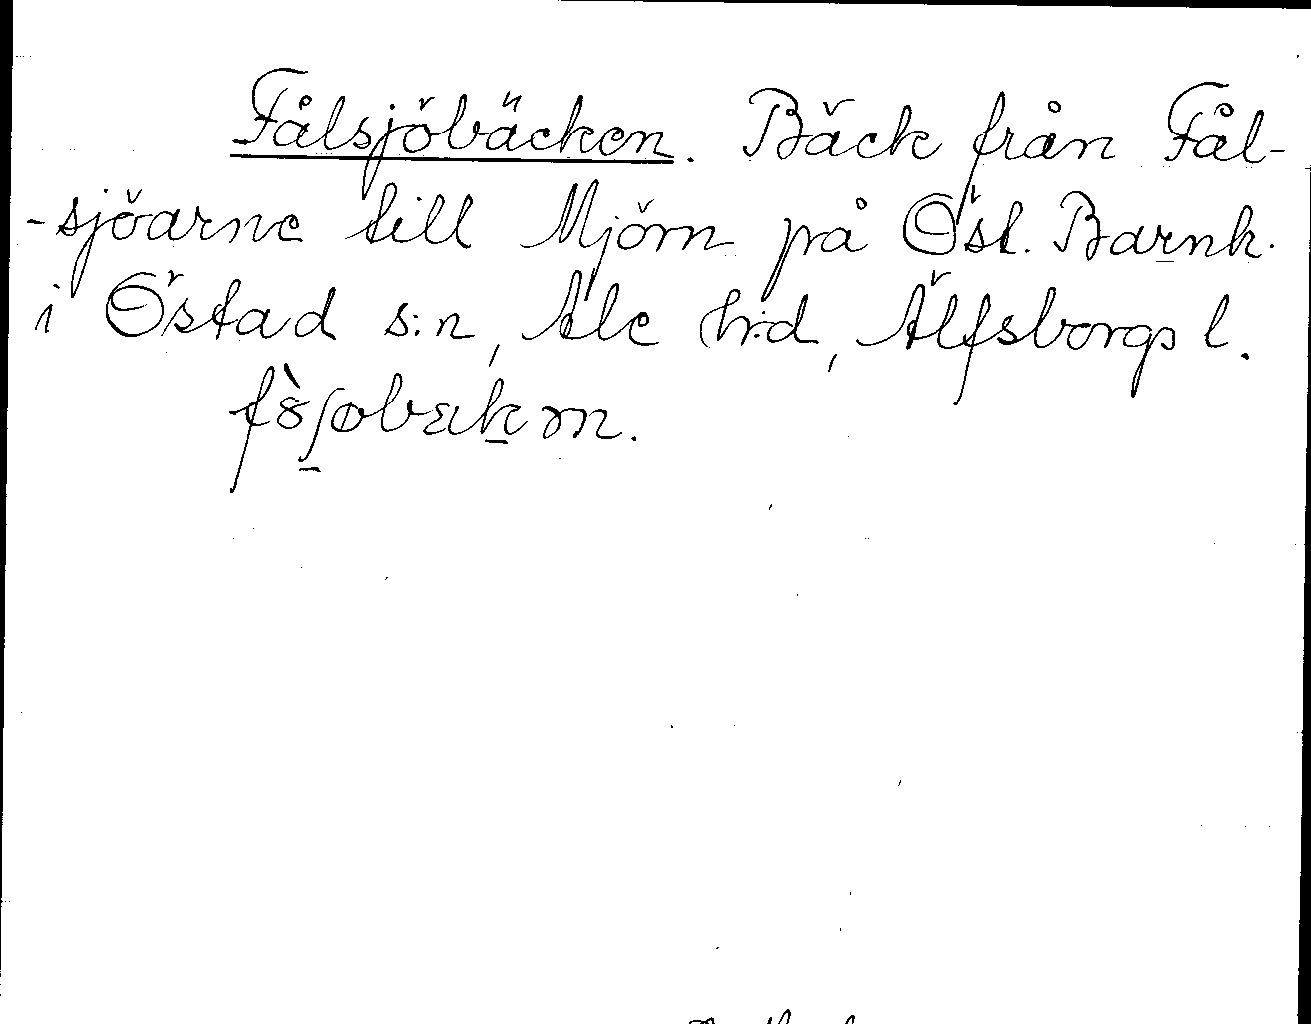 Fålsjöbäcken. Bäck från Fål-
-sjöarne till Mjörn på Östl. Barnk.
i Östad s:n, Ale h:d, Älfsborgs l.